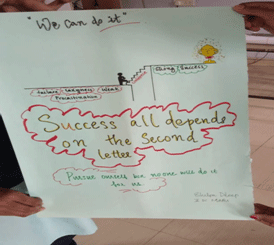 "We can do it"
Strong Success
Failure Laziness Weak
Procrastination
Success all depends
on the Second
letter
Pursue oneself bcz no one will do it
for us.